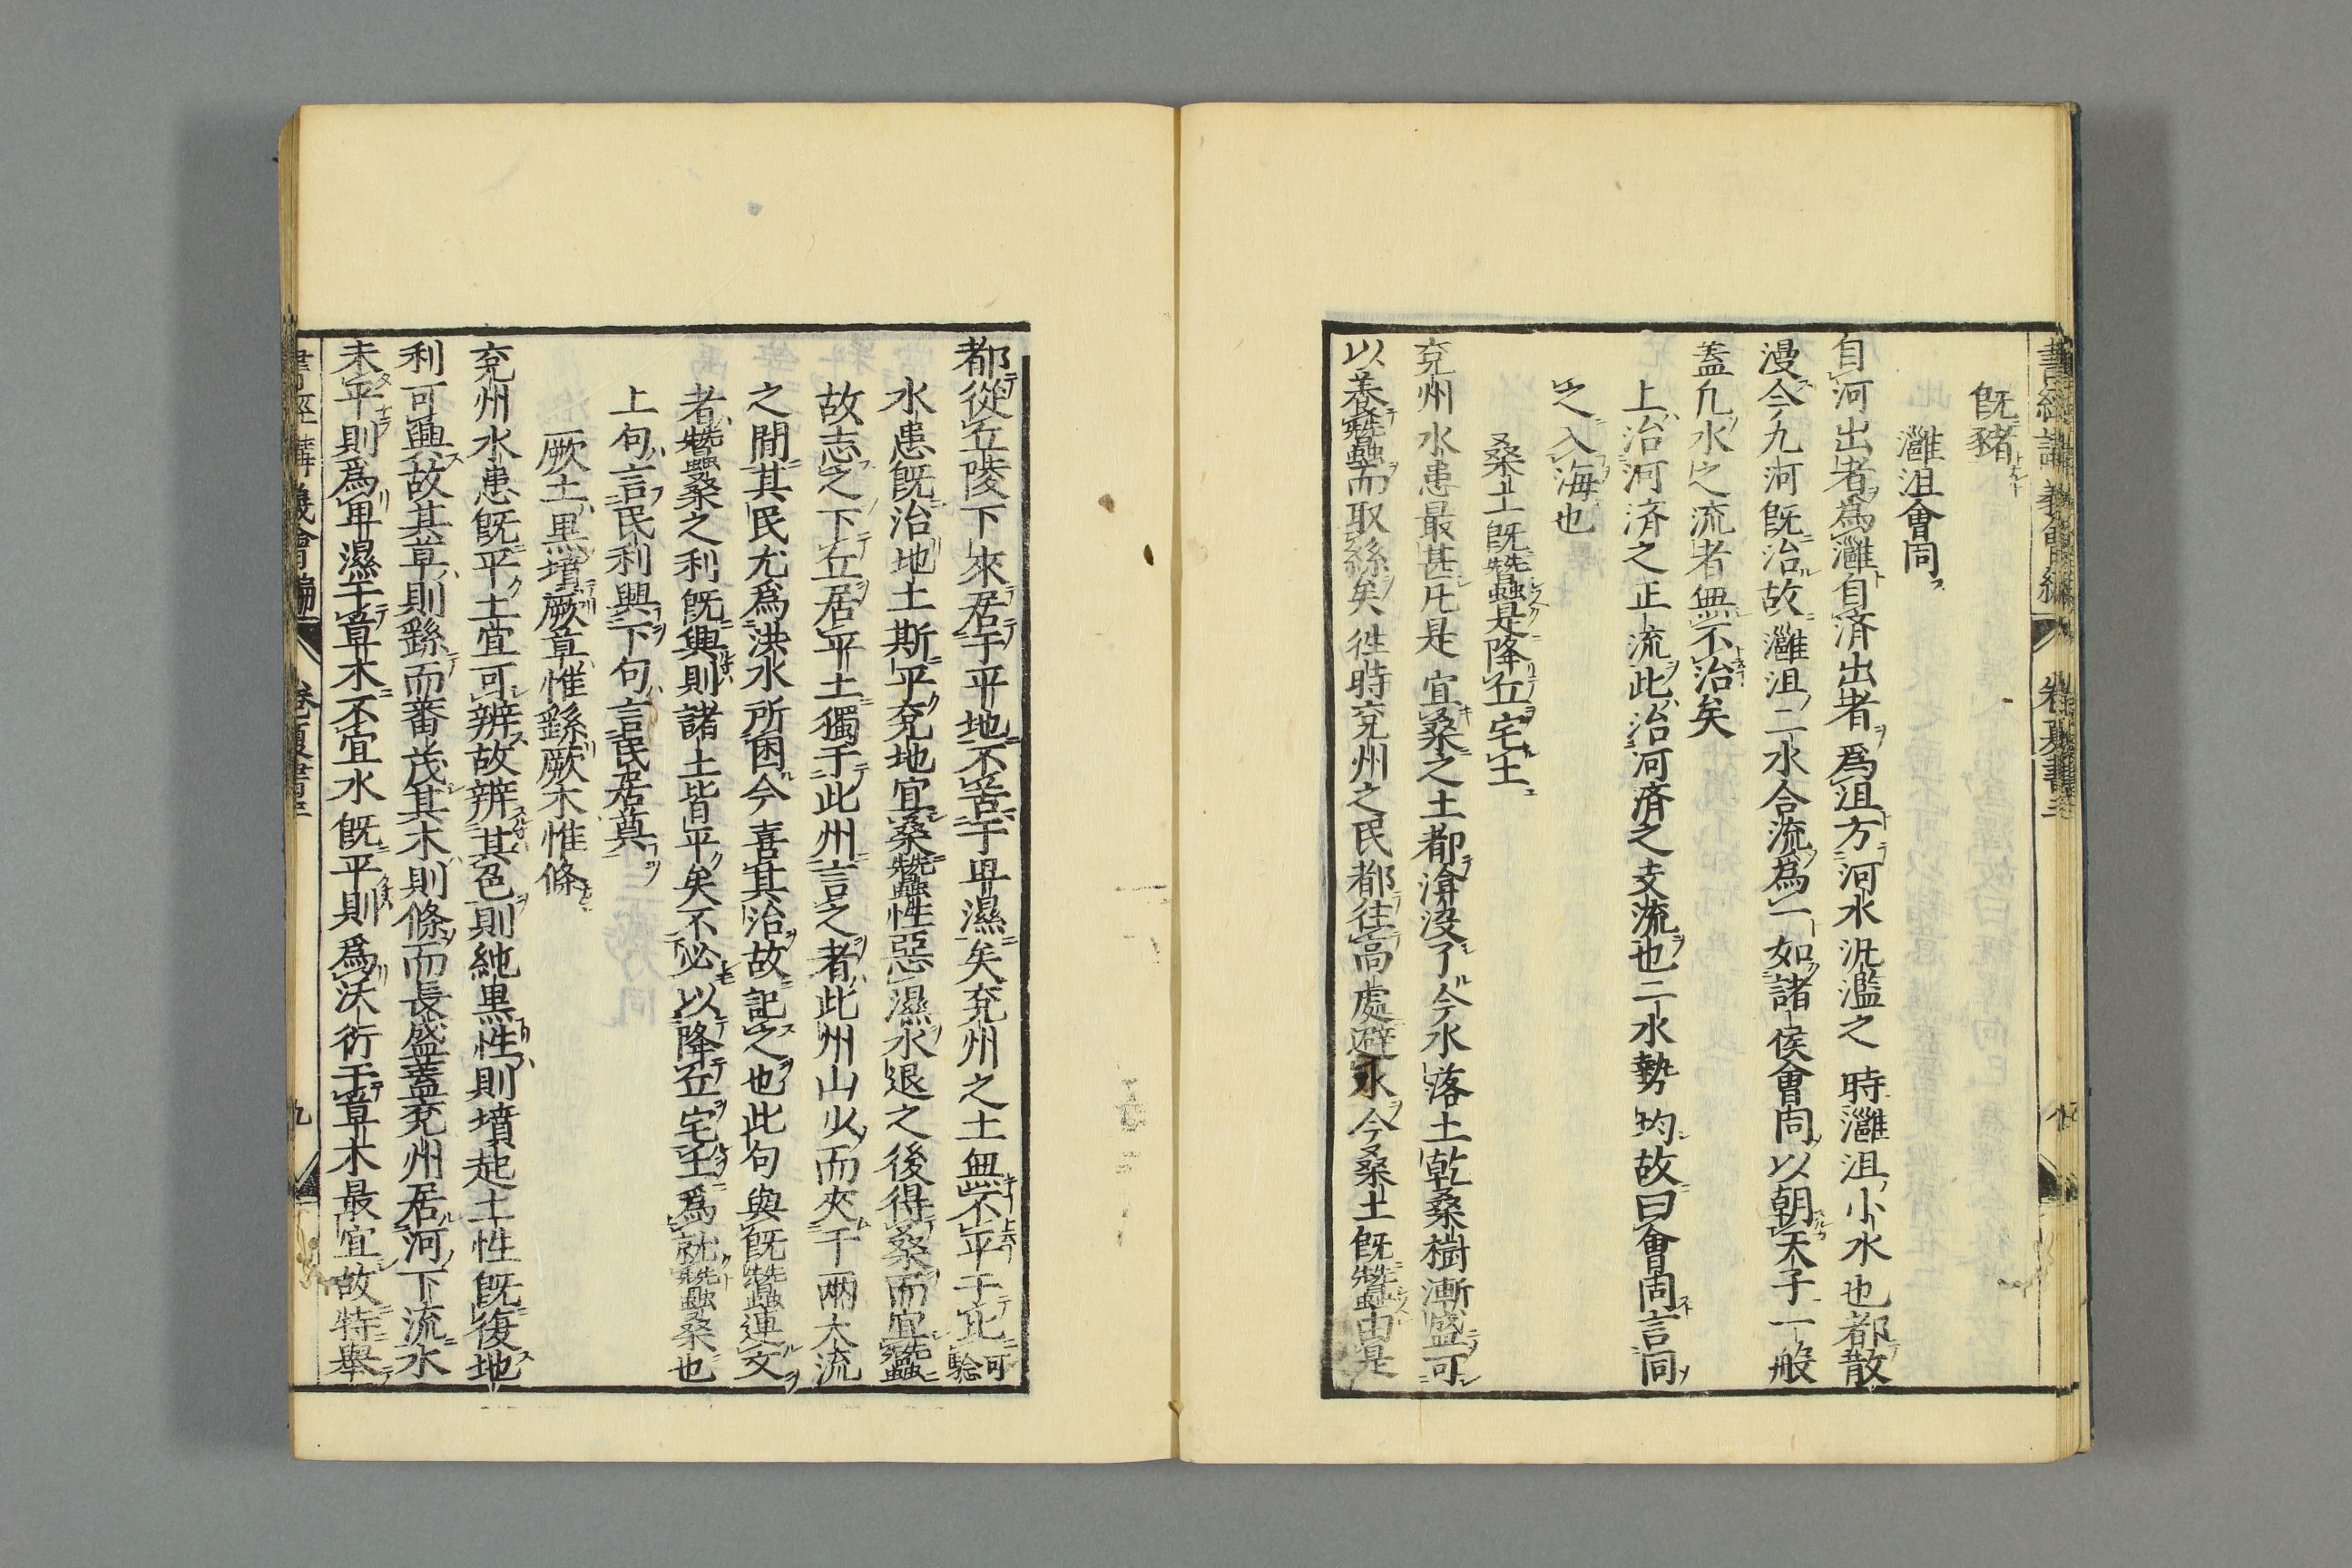 既豬
灉沮會同
自河出者爲灉自済出者爲沮方河水汎濫之時灉沮小水也都散
漫今九河既治故灉沮二水合流爲一如諸侯會同以朝天子一般
蓋凢水之流者無不治矣
上治河済之正流此治河済之支流也二水勢均故曰會同言同
之入海也
桑土既蠶是降丘宅土
兖州水患最甚凡是宜桑之土都渰没了今水落土乾桑樹漸盛可
以養蠶而取絲矣徃時兖州之民都往高處避水今桑土既蠶由是
都從丘陵下來居于平地不苦于卑濕矣兖州之土無不平于此可驗
水患既治地土斯平兖地宜桑蠶性惡濕水退之後得桑而宜蠶
故志之下丘居平土獨于此州言之者此州山少而夾于兩大流
之間其民尤爲洪水所困今喜其治故記之也此句與既蠶連文
者蠶桑之利既興則諸土皆平矣不必以降丘宅土爲就蠶桑也
上句言民利興下句言民居奠
厥土黒墳厥草惟繇厥木惟條
兖州水患既平土宜可辨故辨其色則純黒性則墳起土性既復地
利可興故其草則繇而蕃茂其木則條而長盛蓋兖州居河下流水
未平則爲卑濕于草木不宜水既平則爲沃衍于草木最宜故特舉